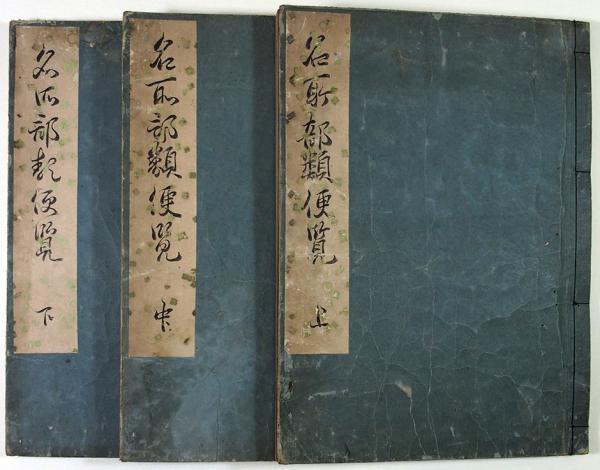 名所部類便覧 上
名所部類便覧 中
名所部類便覧 下